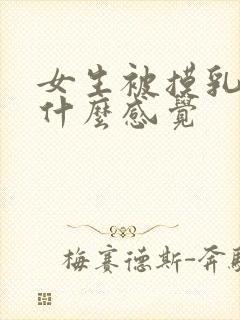 女生被摸乳
什麼感覺
梅賽德斯-奔馳